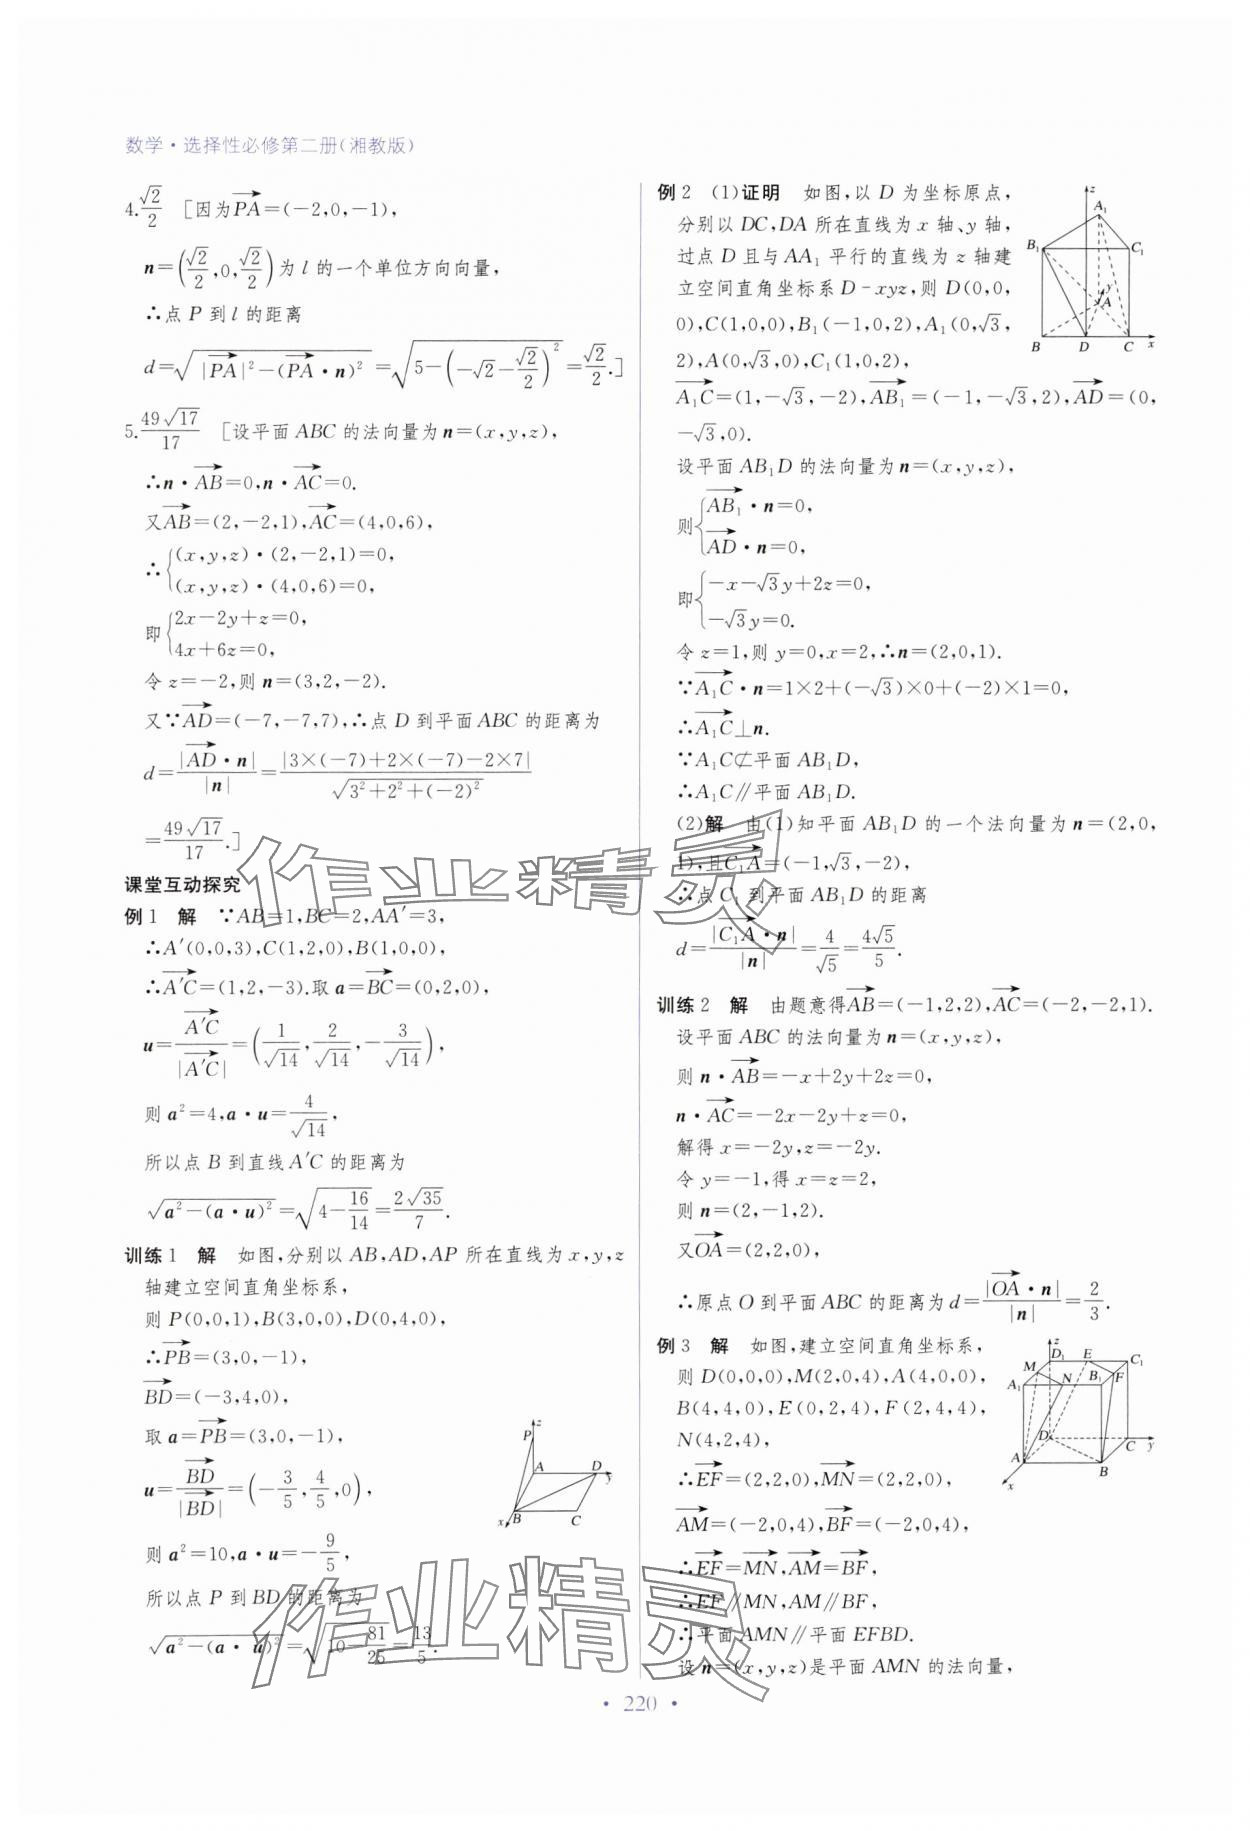 数学·选择性必修第二册(湘教版)
4.√2/2 [因为PA→=(-2,0,-1),
n=(√2/2,0,√2/2)为l的一个单位方向向量,
∴点P到l的距离
d=√(|PA→|²-(PA→·n)²)=√(5-(-√2-√2/2)²)=√2/2.]
5.49√17/17 [设平面ABC的法向量为n=(x,y,z),
∴n·AB→=0,n·AC→=0.
又AB→=(2,-2,1),AC→=(4,0,6),
∴{(x,y,z)·(2,-2,1)=0,
(x,y,z)·(4,0,6)=0,
即{2x-2y+z=0,
4x+6z=0,
令z=-2,则n=(3,2,-2).
又∵AD→=(-7,-7,7),∴点D到平面ABC的距离为
d=|AD→·n|/|n|=|3×(-7)+2×(-7)-2×7|/√(3²+2²+(-2)²)
=49√17/17.]
课堂互动探究
例1 解 ∵AB=1,BC=2,AA′=3,
∴A′(0,0,3),C(1,2,0),B(1,0,0),
∴A′C→=(1,2,-3).取a=BC→=(0,2,0),
u=A′C→/|A′C→|=(1/√14,2/√14,-3/√14),
则a²=4,a·u=4/√14,
所以点B到直线A′C的距离为
√(a²-(a·u)²)=√(4-16/14)=2√35/7.
训练1 解 如图,分别以AB,AD,AP所在直线为x,y,z
轴建立空间直角坐标系,
则P(0,0,1),B(3,0,0),D(0,4,0),
∴PB→=(3,0,-1),
BD→=(-3,4,0),
取a=PB→=(3,0,-1),
u=BD→/|BD→|=(-3/5,4/5,0),
则a²=10,a·u=-9/5,
所以点P到BD的距离为
√(a²-(a·u)²)=√(10-81/25)=13/5.
z
P
A
D
y
B
C
x
例2 (1)证明 如图,以D为坐标原点,
分别以DC,DA所在直线为x轴、y轴,
过点D且与AA₁平行的直线为z轴建
立空间直角坐标系D-xyz,则D(0,0,
0),C(1,0,0),B₁(-1,0,2),A₁(0,√3,
2),A(0,√3,0),C₁(1,0,2),
A₁C→=(1,-√3,-2),AB₁→=(-1,-√3,2),AD→=(0,
-√3,0).
z
A₁
B₁
C₁
y
A
B
D
C
x
设平面AB₁D的法向量为n=(x,y,z),
则{AB₁→·n=0,
AD→·n=0,
即{-x-√3y+2z=0,
-√3y=0.
令z=1,则y=0,x=2,∴n=(2,0,1).
∵A₁C→·n=1×2+(-√3)×0+(-2)×1=0,
∴A₁C→⊥n.
∵A₁C⊄平面AB₁D,
∴A₁C∥平面AB₁D.
(2)解 由(1)知平面AB₁D的一个法向量为n=(2,0,
1),且C₁A→=(-1,√3,-2),
∴点C₁到平面AB₁D的距离
d=|C₁A→·n|/|n|=4/√5=4√5/5.
训练2 解 由题意得AB→=(-1,2,2),AC→=(-2,-2,1).
设平面ABC的法向量为n=(x,y,z),
则n·AB→=-x+2y+2z=0,
n·AC→=-2x-2y+z=0,
解得x=-2y,z=-2y.
令y=-1,得x=z=2,
则n=(2,-1,2).
又OA→=(2,2,0),
∴原点O到平面ABC的距离为d=|OA→·n|/|n|=2/3.
例3 解 如图,建立空间直角坐标系,
则D(0,0,0),M(2,0,4),A(4,0,0),
B(4,4,0),E(0,2,4),F(2,4,4),
N(4,2,4),
∴EF→=(2,2,0),MN→=(2,2,0),
AM→=(-2,0,4),BF→=(-2,0,4),
∴EF→=MN→,AM→=BF→,
∴EF∥MN,AM∥BF,
∴平面AMN∥平面EFBD.
设n=(x,y,z)是平面AMN的法向量,
z
D₁
E
C₁
M
F
A₁
N
B₁
D
C
y
A
B
x
作业精灵
作业精灵
·220·